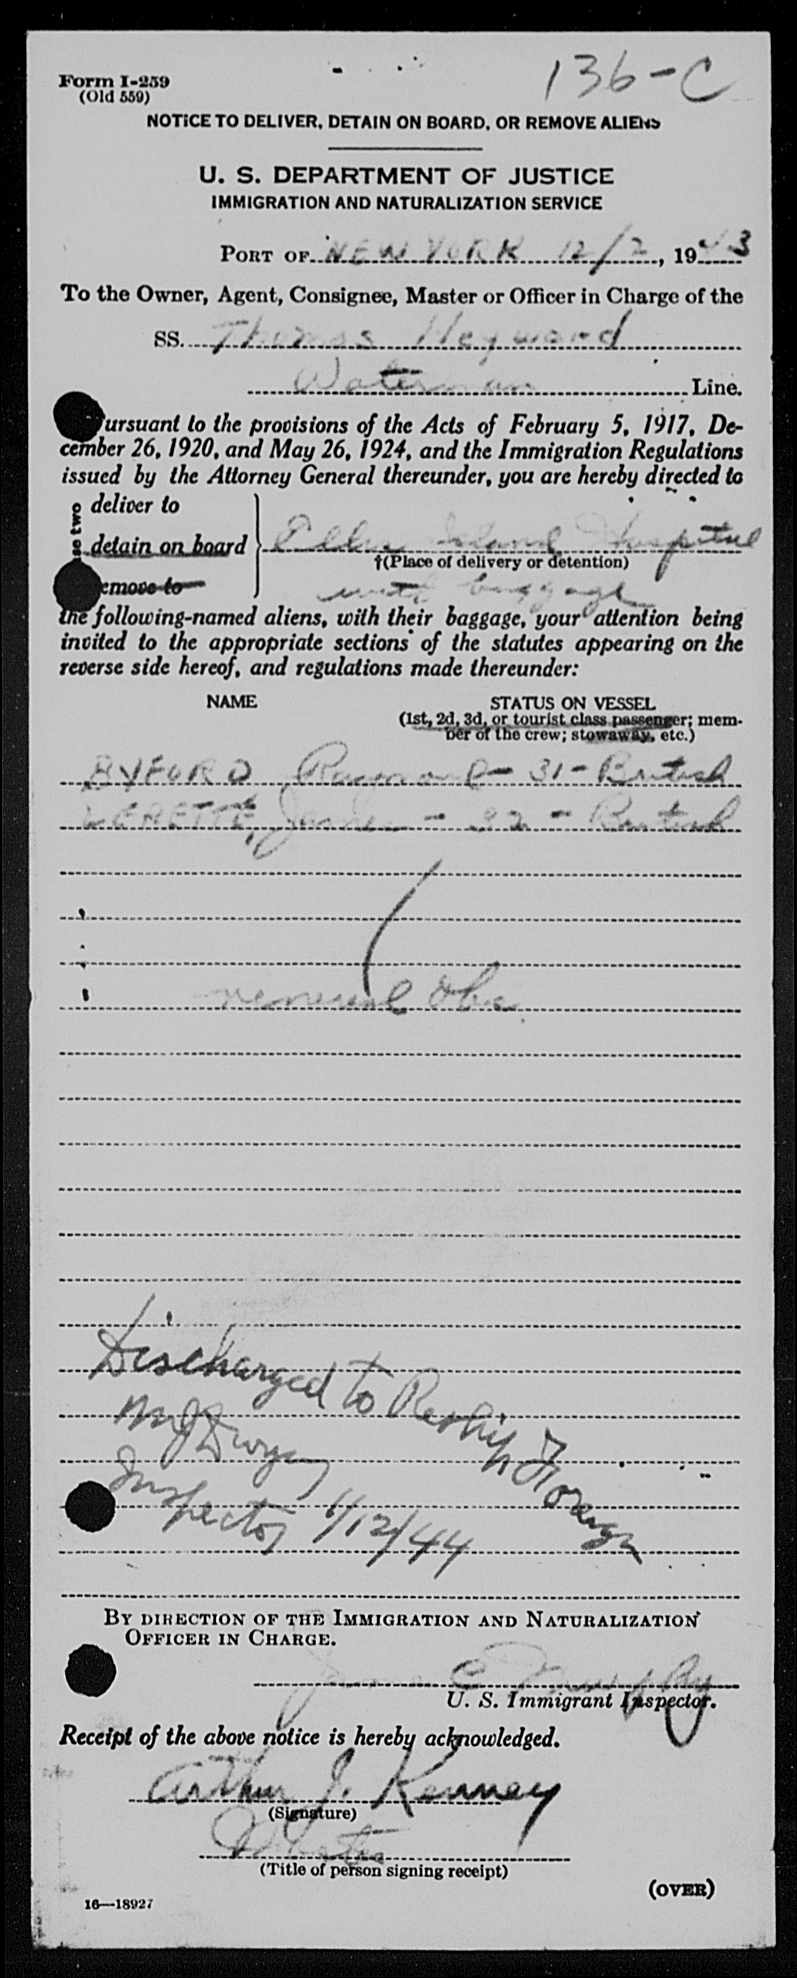 136-C
Form I-259
(Old 559)
NOTICE TO DELIVER, DETAIN ON BOARD, OR REMOVE ALIENS
U. S. DEPARTMENT OF JUSTICE
IMMIGRATION AND NATURALIZATION SERVICE
PORT OF NEW YORK 12/2, 1943
To the Owner, Agent, Consignee, Master or Officer in Charge of the
SS. Thomas Heyward
Waterman Line.
ursuant to the provisions of the Acts of February 5, 1917, De-
cember 26, 1920, and May 26, 1924, and the Immigration Regulations
issued by the Attorney General thereunder, you are hereby directed to
deliver to
detain on board Ellis Island Hospital
†(Place of delivery or detention)
emove to with baggage
se two
the following-named aliens, with their baggage, your attention being
invited to the appropriate sections of the statutes appearing on the
reverse side hereof, and regulations made thereunder:
NAME STATUS ON VESSEL
(1st, 2d, 3d, or tourist class passenger; mem-
ber of the crew; stowaway, etc.)
BYFORD, Raymond - 31 - British
James - British
venereal Obs.
Discharged to Reship Foreign
Inspector 1/12/44
BY DIRECTION OF THE IMMIGRATION AND NATURALIZATION
OFFICER IN CHARGE.
James E Murphy
U. S. Immigrant Inspector.
Receipt of the above notice is hereby acknowledged.
Arthur J. Kenney
(Signature)
(Title of person signing receipt)
(OVER)
16—18927